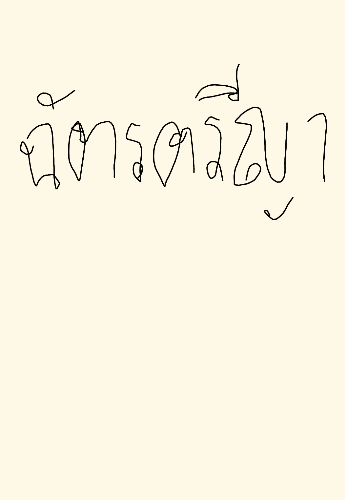 ฉัตรตรีญา